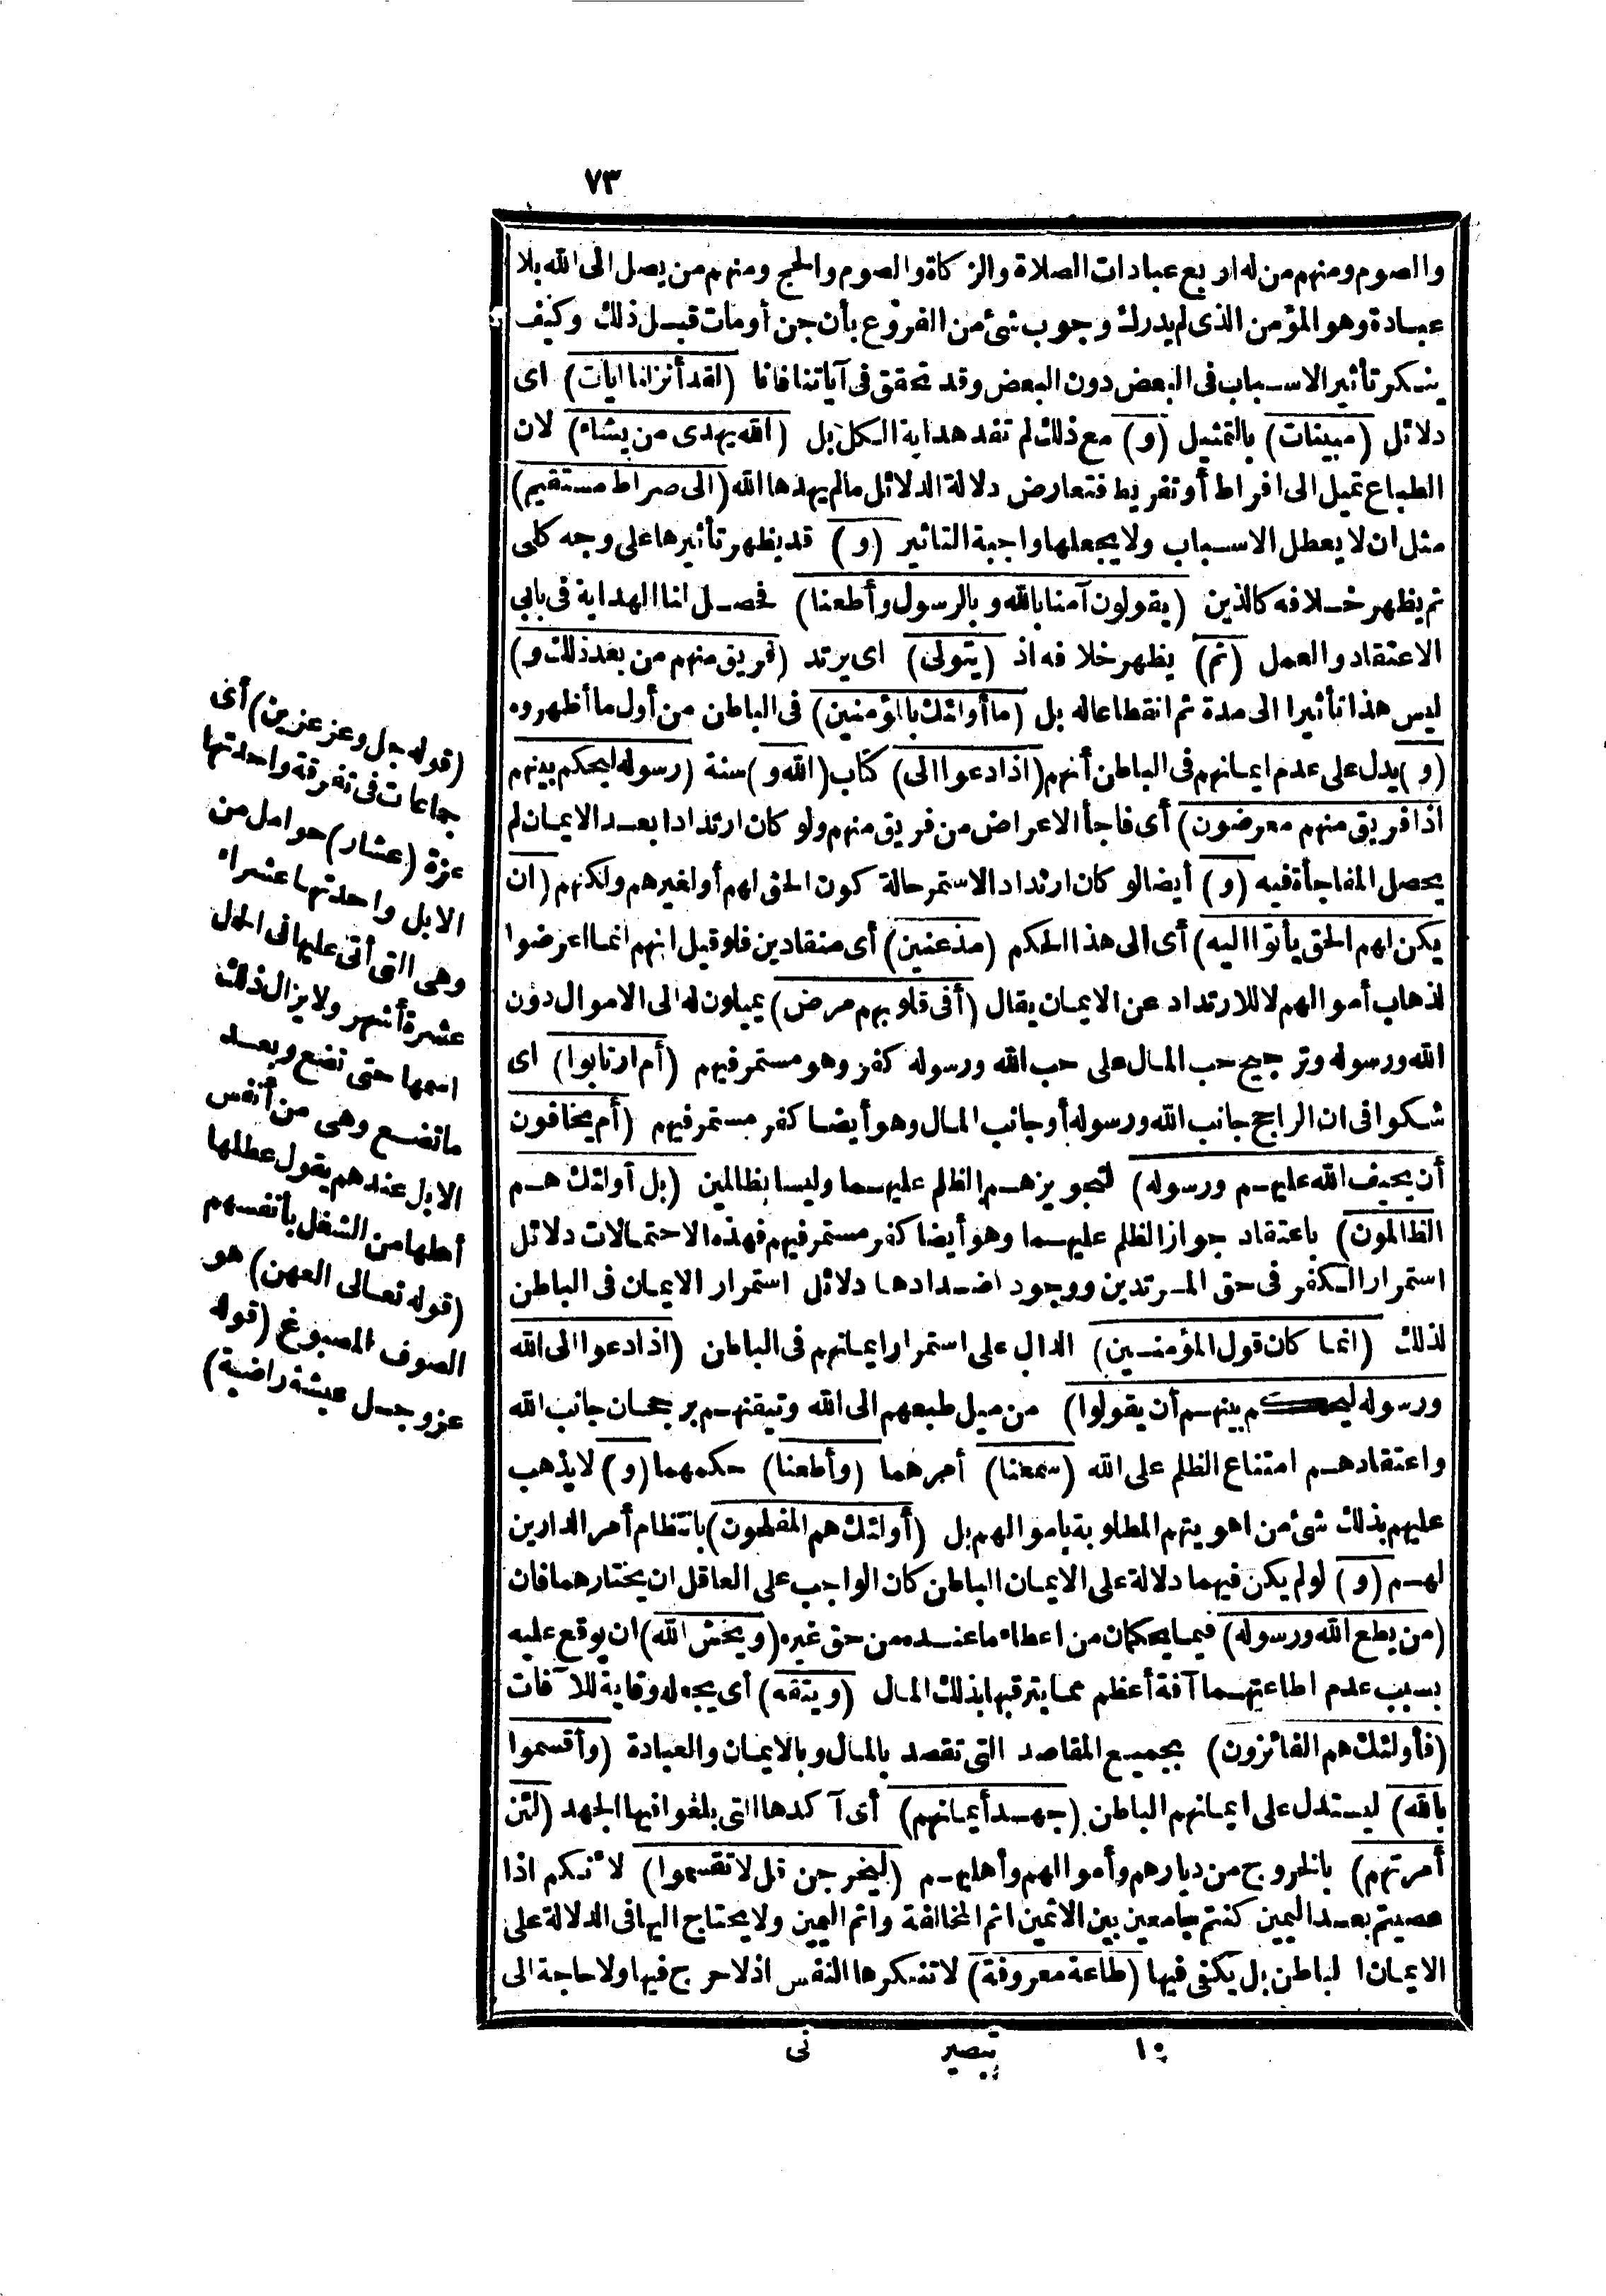 ٧٣
والصوم ومنهم من له اربع عبادات الصلاة والزكاة والصوم والحج ومنهم من يصل الى الله بلا
عبادة وهو المؤمن الذى لم يدرك وجوب شئ من الفروع بأن جن أو مات قبل ذلك وكيف
ينكر تأثير الاسباب فى البعض دون البعض وقد تحقق فى آياتنا فانا (لقد أنزلنا ايات) اى
دلائل (مبينات) بالتمثيل (و) مع ذلك لم تفد هداية الكل بل (الله يهدى من يشاء) لان
الطباع تميل الى افراط أو تفريط فتعارض دلالة الدلائل مالم يهدها الله (الى صراط مستقيم)
مثل ان لا يعطل الاسباب ولا يجعلها واجبة التاثير (و) قد يظهر تأثيرها على وجه كلى
ثم يظهر خلافه كالذين (يقولون آمنا بالله وبالرسول وأطعنا) فحصل لنا الهداية فى بابي
الاعتقاد والعمل (ثم) يظهر خلافه اذ (يتولى) اى يرتد (فريق منهم من بعد ذلك و)
ليس هذا تأثيرا الى مدة ثم انقطاعا له بل (ما أولئك بالمؤمنين) فى الباطن من أول ما أظهروه
(و) يدل على عدم ايمانهم فى الباطن أنهم (اذا دعوا الى) كتاب (الله و) سنة (رسوله ليحكم بينهم
اذا فريق منهم معرضون) أى فاجأ الاعراض من فريق منهم ولو كان ارتدادا بعد الايمان لم
يحصل المفاجأة فيه (و) أيضا لو كان ارتداد الاستمر حالة كون الحق لهم أو لغيرهم ولكنهم (ان
يكن لهم الحق يأتوا اليه) أى الى هذا الحكم (مذعنين) أى منقادين فلو قيل انهم انما اعرضوا
لذهاب أموالهم لا للارتداد عن الايمان يقال (أفى قلوبهم مرض) يميلون له الى الاموال دون
الله ورسوله وترجيح حب المال على حب الله ورسوله كفر وهو مستمر فيهم (أم ارتابوا) اى
شكوا فى ان الراجح جانب الله ورسوله أو جانب المال وهو أيضا كفر مستمر فيهم (أم يخافون
أن يحيف الله عليهم ورسوله) لتجويزهم الظلم عليهما وليسا بظالمين (بل أولئك هم
الظالمون) باعتقاد جواز الظلم عليهما وهو أيضا كفر مستمر فيهم فهذه الاحتمالات دلائل
استمرار الكفر فى حق المرتدين ووجود اضدادها دلائل استمرار الايمان فى الباطن
لذلك (انما كان قول المؤمنين) الدال على استمرار ايمانهم فى الباطن (اذا دعوا الى الله
ورسوله ليحكم بينهم أن يقولوا) من ميل طبعهم الى الله وتيقنهم برجحان جانب الله
واعتقادهم امتناع الظلم على الله (سمعنا) أمرهما (وأطعنا) حكمهما (و) لا يذهب
عليهم بذلك شئ من اهويتهم المطلوبة باموالهم بل (أولئك هم المفلحون) بانتظام أمر الدارين
لهم (و) لو لم يكن فيهما دلالة على الايمان الباطن كان الواجب على العاقل ان يختارهما فان
(من يطع الله ورسوله) فيما يحكمان من اعطاء ما عنده من حق غيره (ويخش الله) ان يوقع عليه
بسبب عدم اطاعتهما آفة أعظم مما يترقبها بذلك المال (ويتقه) أى يجعله وقاية للآفات
(فأولئك هم الفائزون) بجميع المقاصد التى تقصد بالمال وبالايمان والعبادة (وأقسموا
بالله) ليستدل على ايمانهم الباطن (جهد أيمانهم) أى آكدها التى بلغوا فيها الجهد (لئن
أمرتهم) بالخروج من ديارهم وأموالهم وأهليهم (ليخرجن قل لا تقسموا) لأنكم اذا
عصيتم بعد اليمين كنتم جامعين بين الاثمين اثم المخالفة واثم اليمين ولا يحتاج اليها فى الدلالة على
الايمان الباطن بل يكفى فيها (طاعة معروفة) لا تنكرها النفس اذ لا حرج فيها ولا حاجة الى
(قوله جل وعز عزين) أى
جماعات فى تفرقة واحدتها
عزة (عشار) حوامل من
الابل واحدتها عشراء
وهى التى أتى عليها فى الحمل
عشرة أشهر ولا يزال ذلك
اسمها حتى تضع وبعد
ما تضع وهى من أنفس
الابل عندهم يقول عطلها
أهلها من الشغل بأنفسهم
(قوله تعالى العهن) هو
الصوف المصبوغ (قوله
عز وجل عيشة راضية)
١٠ تبصير نى